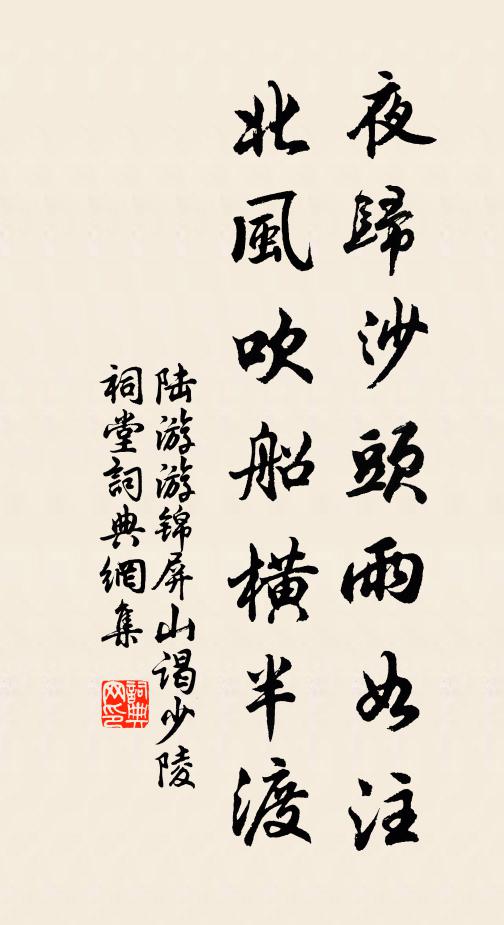 夜歸沙頭雨如注
北風吹船橫半渡
陆游游锦屏山谒少陵
祠堂詞典網集
詞典网印